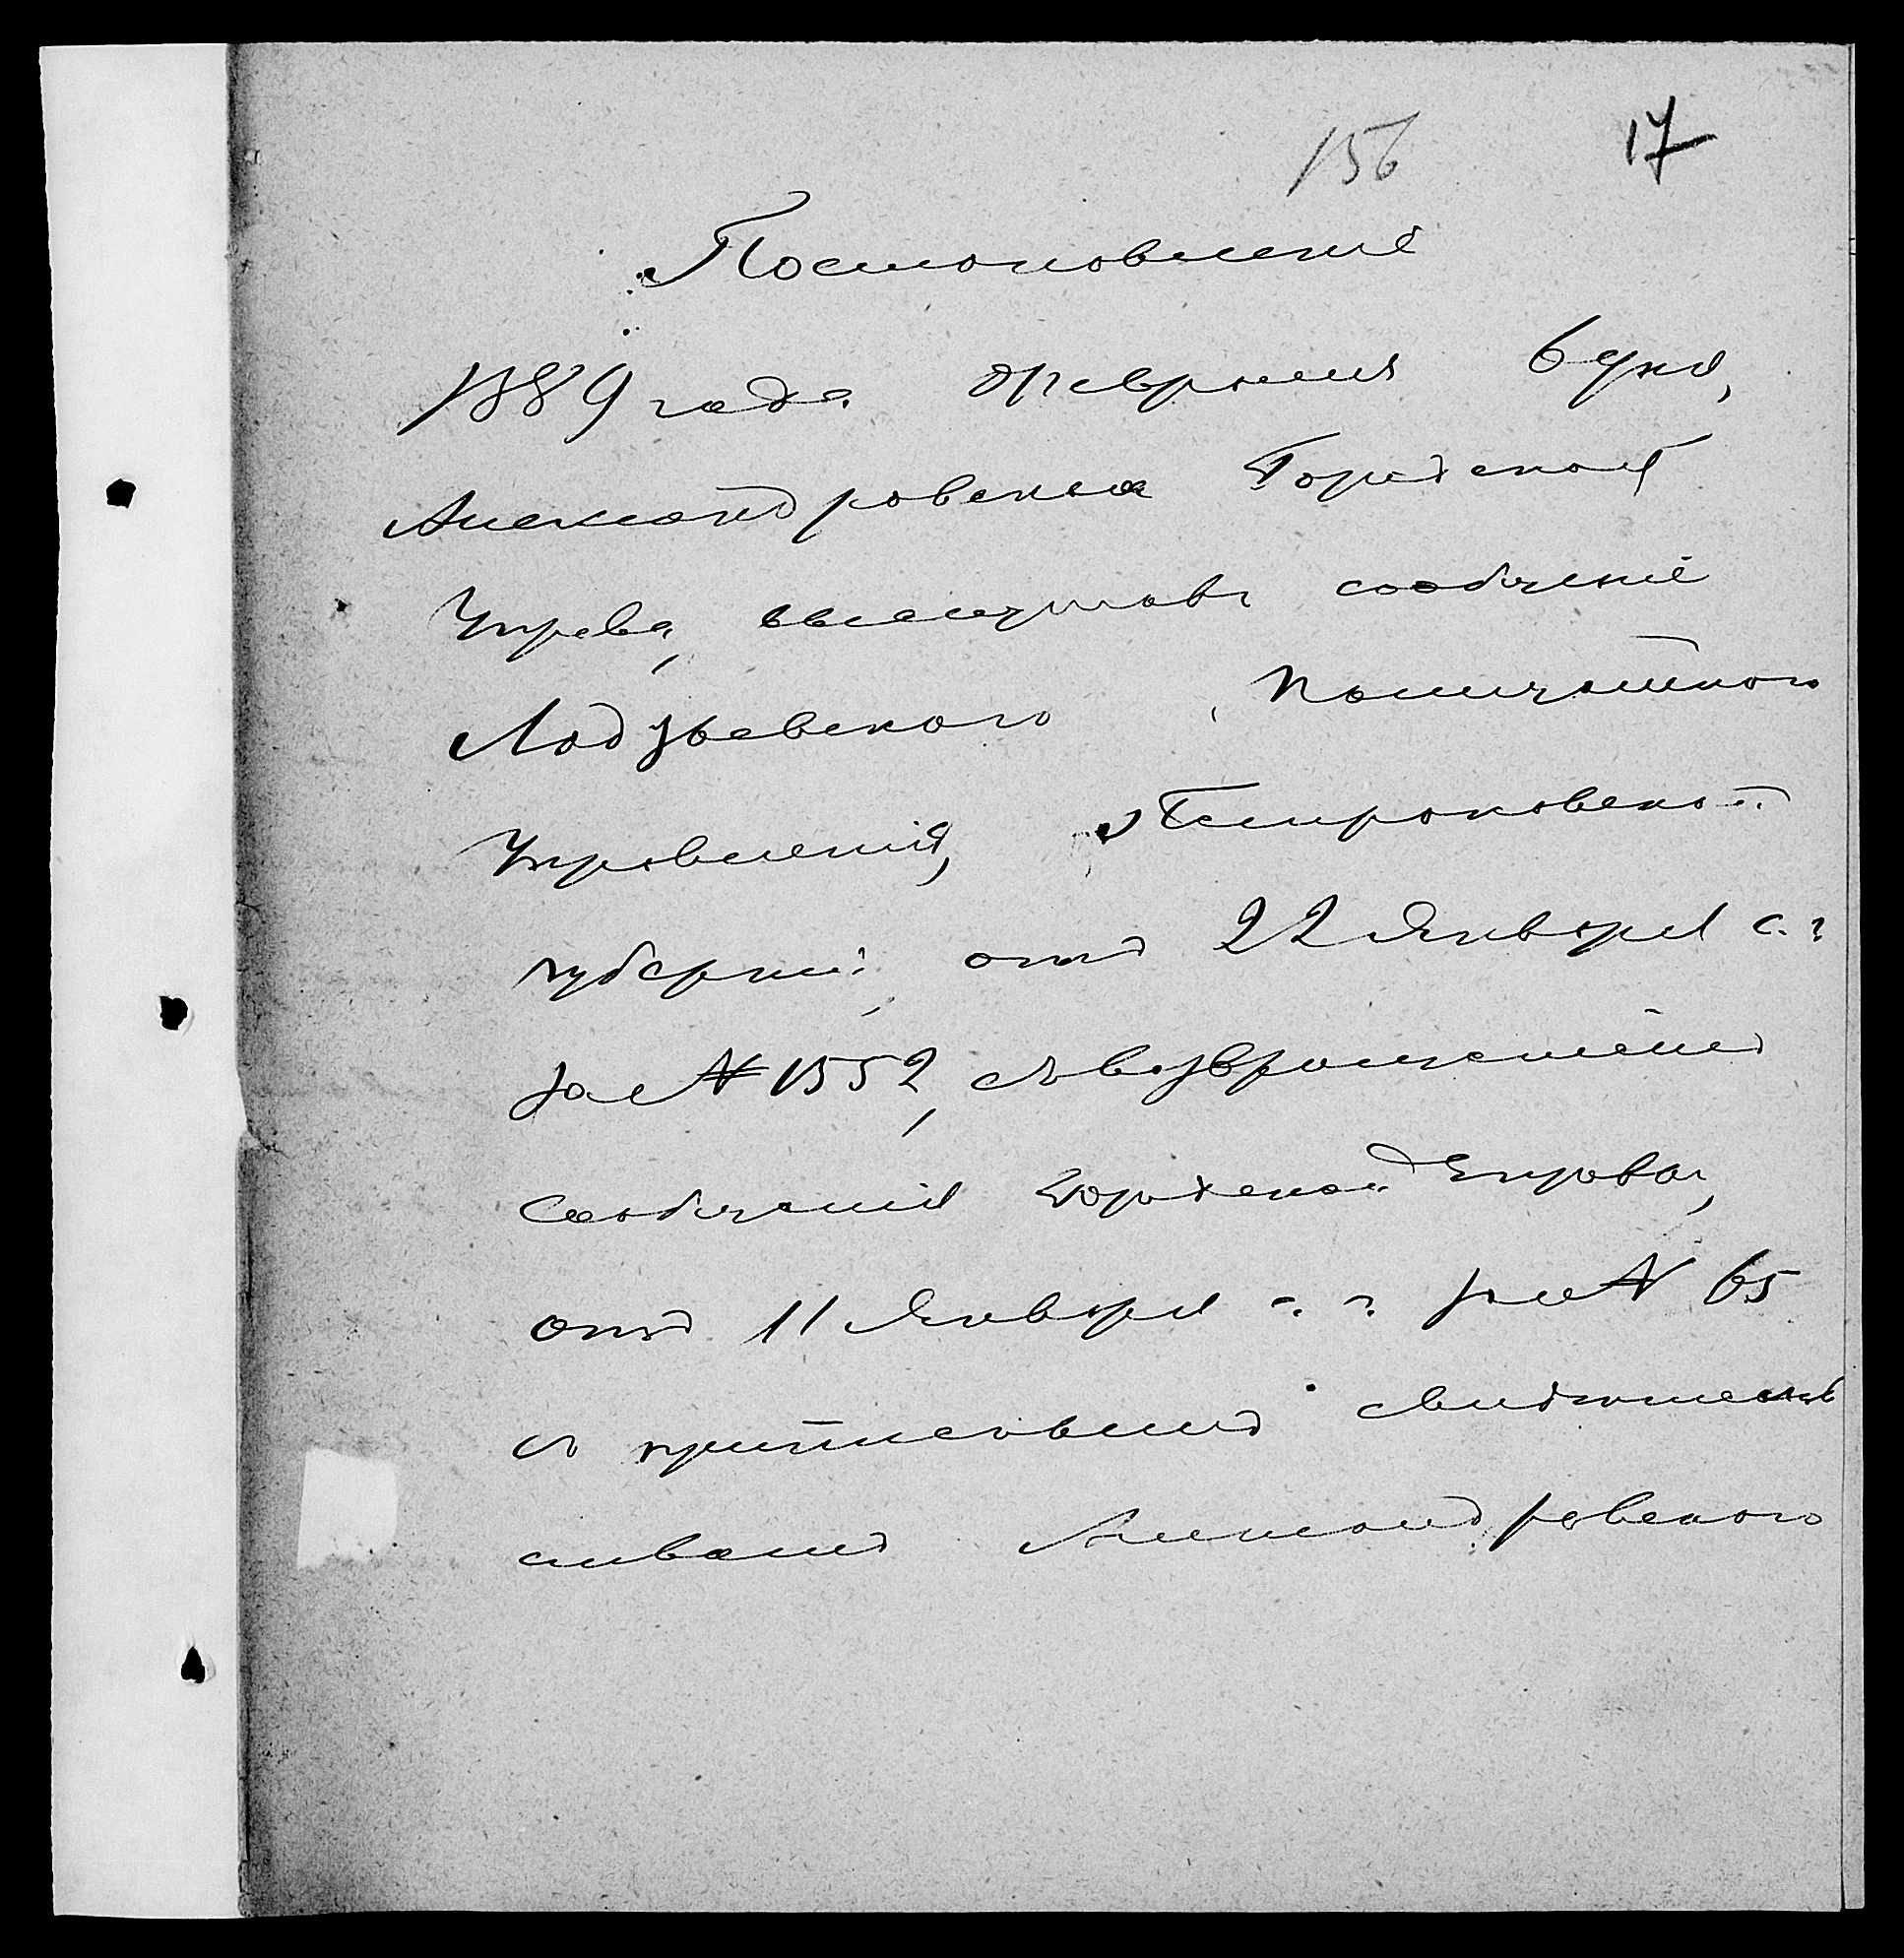 156 17
Постановленіе
1889 года Февраля 6 дня,
Александровская Городская
Управа, выслушавъ сообщеніе
Лодзьевского Полицейского
Управленія, Петроковской
губерніи, отъ 22 Января с. г.
за № 1552, съ возвращеніемъ
сообщенія Городской Управы,
отъ 11 Января с. г. за № 65
съ
Александровского